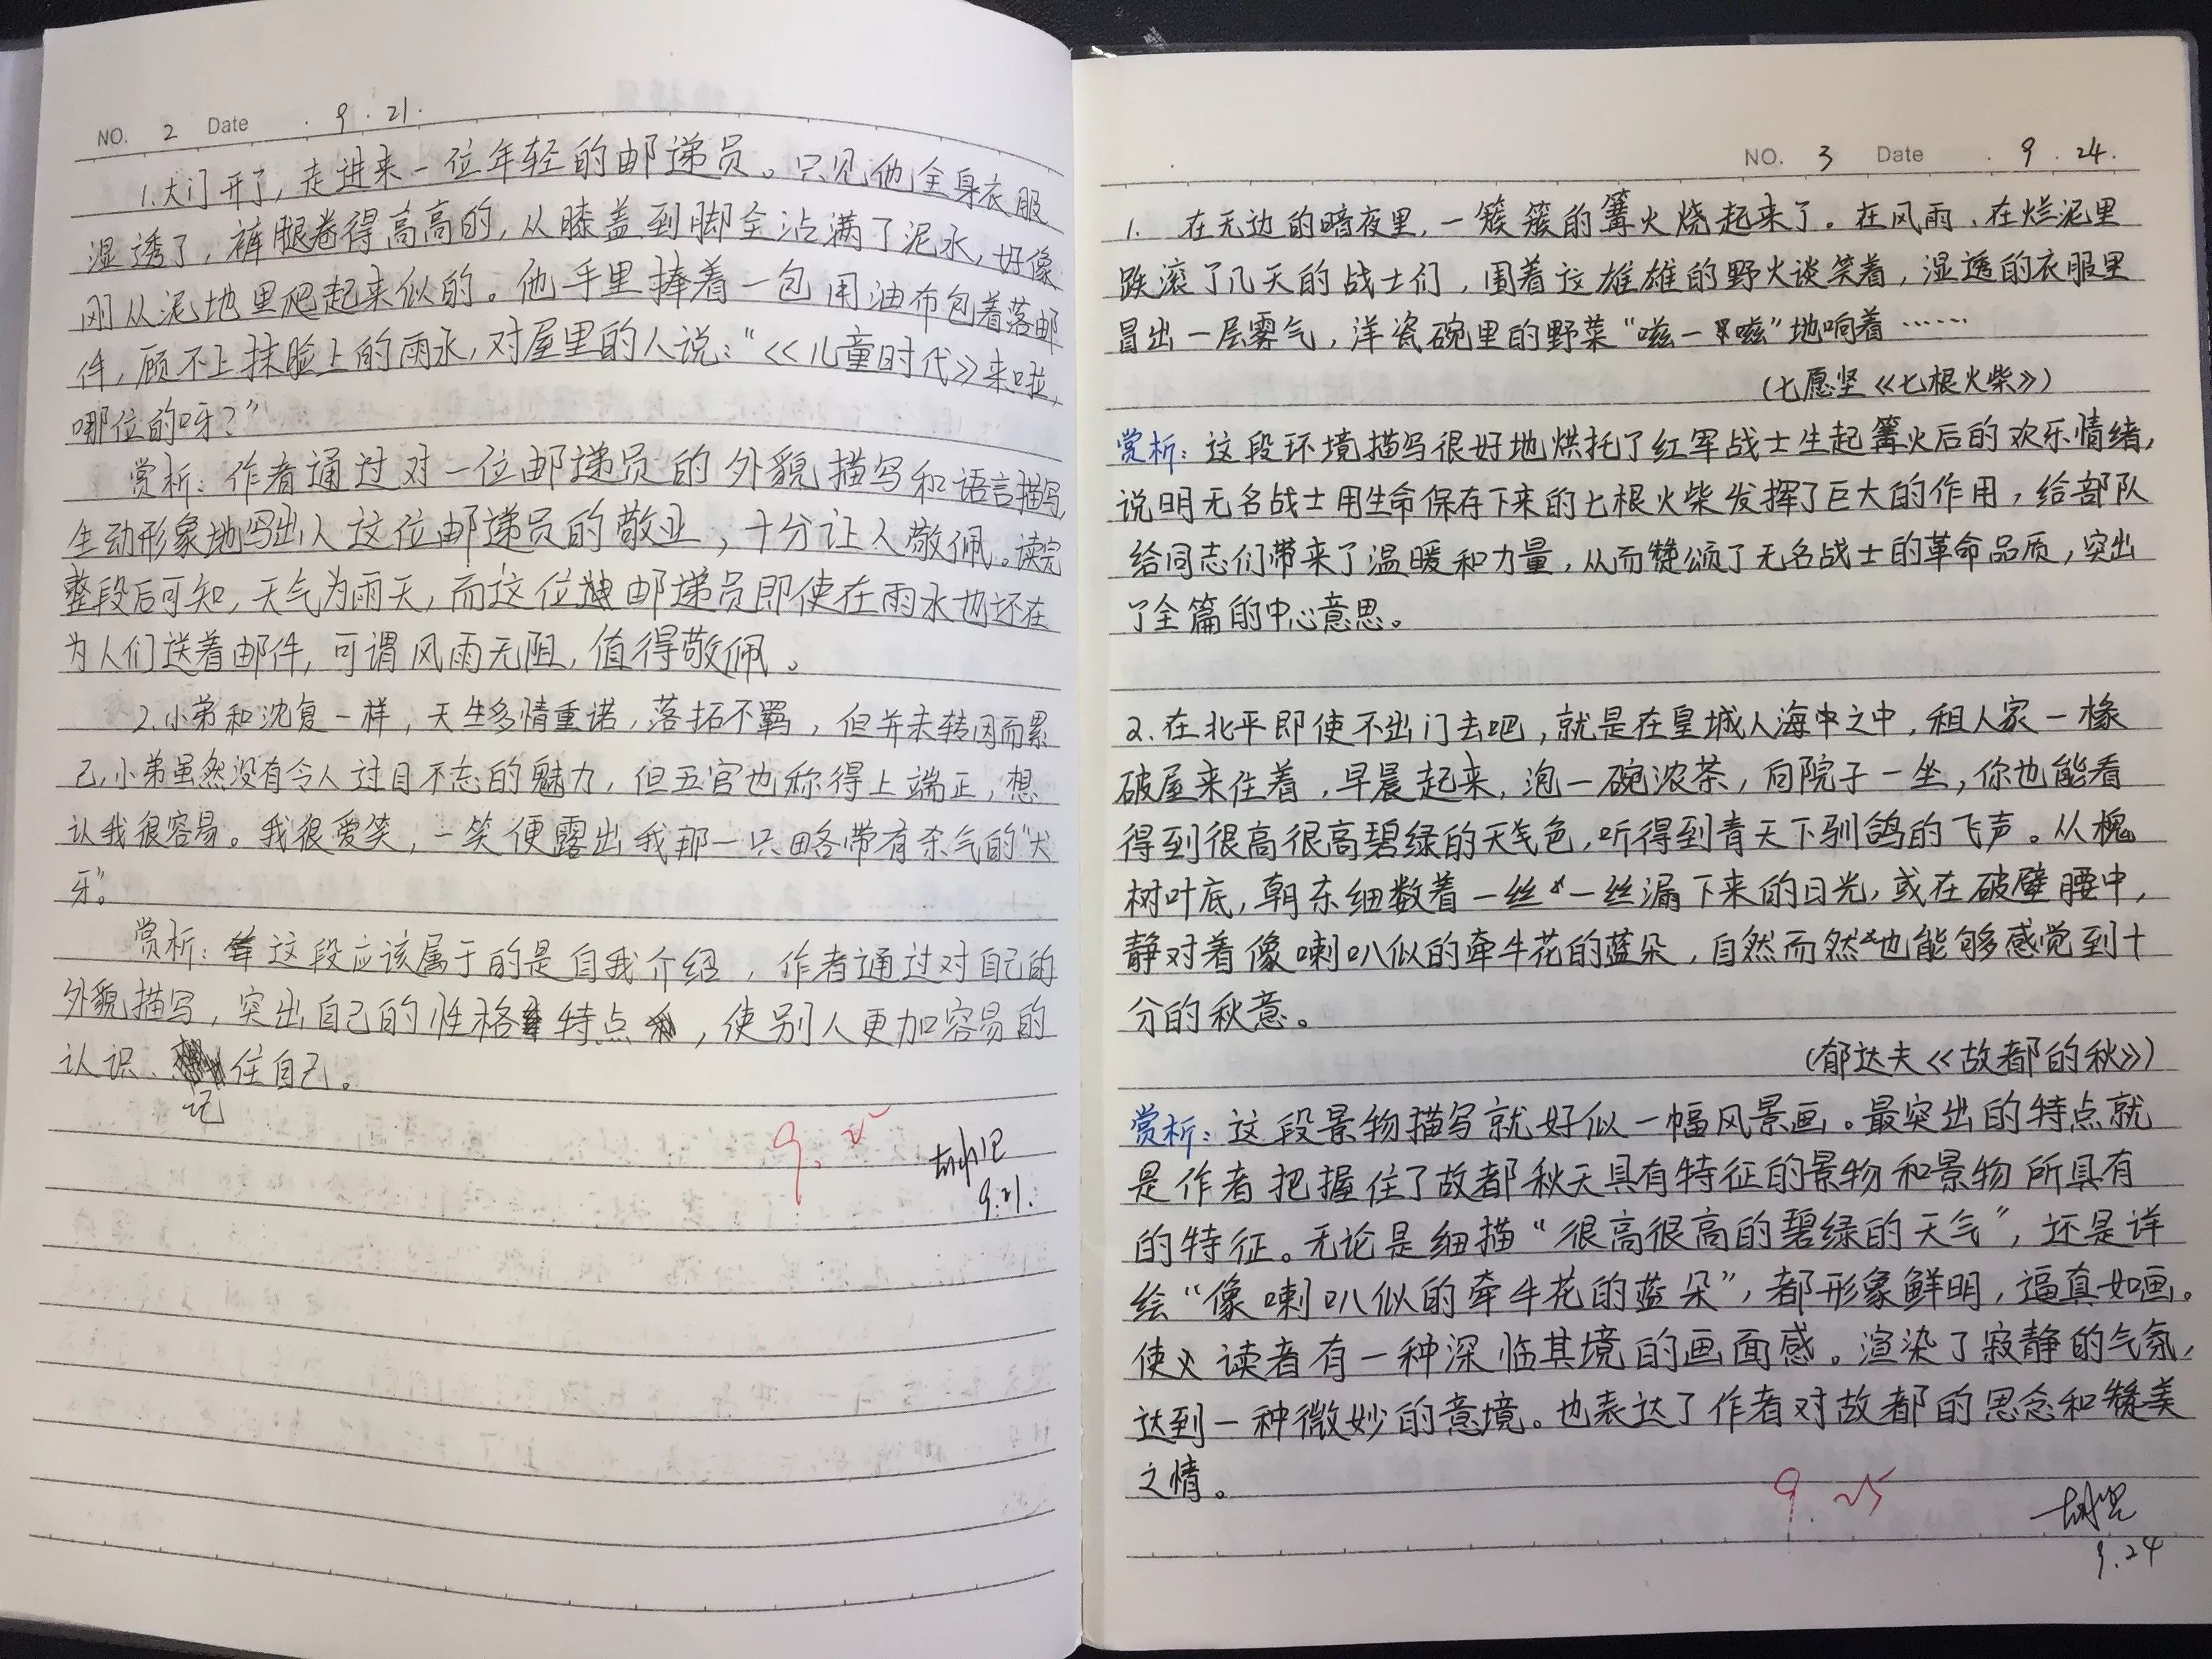 NO. 2 Date 9.21.
1.大门开了,走进来一位年轻的邮递员。只见他全身衣服
湿透了,裤腿卷得高高的,从膝盖到脚全沾满了泥水,好像
刚从泥地里爬起来似的。他手里捧着一包用油布包着落邮
件,顾不上抹脸上的雨水,对屋里的人说:“《儿童时代》来啦,
哪位的呀?”
赏析:作者通过对一位邮递员的外貌描写和语言描写,
生动形象地写出人这位邮递员的敬业,十分让人敬佩。读完
整段后可知,天气为雨天,而这位邮递员即使在雨水也还在
为人们送着邮件,可谓风雨无阻,值得敬佩。
2.小弟和沈复一样,天生多情重诺,落拓不羁,但并未转因而累
己,小弟虽然没有令人过目不忘的魅力,但五官也称得上端正,想
认我很容易。我很爱笑,一笑便露出我那一只略带有杀气的“犬
牙”。
赏析:这段应该属于的是自我介绍,作者通过对自己的
外貌描写,突出自己的性格特点,使别人更加容易的
认识、记住自己。
9.25
9.21.
NO. 3 Date 9.24.
1. 在无边的暗夜里,一簇簇的篝火烧起来了。在风雨、在烂泥里
跌滚了几天的战士们,围着这雄雄的野火谈笑着,湿透的衣服里
冒出一层雾气,洋瓷碗里的野菜“嗞—嗞”地响着……
(七愿坚《七根火柴》)
赏析:这段环境描写很好地烘托了红军战士生起篝火后的欢乐情绪,
说明无名战士用生命保存下来的七根火柴发挥了巨大的作用,给部队
给同志们带来了温暖和力量,从而赞颂了无名战士的革命品质,突出
了全篇的中心意思。
2.在北平即使不出门去吧,就是在皇城人海中之中,租人家一椽
破屋来住着,早晨起来,泡一碗浓茶,向院子一坐,你也能看
得到很高很高碧绿的天色,听得到青天下驯鸽的飞声。从槐
树叶底,朝东细数着一丝一丝漏下来的日光,或在破壁腰中,
静对着像喇叭似的牵牛花的蓝朵,自然而然也能够感觉到十
分的秋意。
(郁达夫《故都的秋》)
赏析:这段景物描写就好似一幅风景画。最突出的特点就
是作者把握住了故都秋天具有特征的景物和景物所具有
的特征。无论是细描“很高很高的碧绿的天气”,还是详
绘“像喇叭似的牵牛花的蓝朵”,都形象鲜明,逼真如画。
使读者有一种深临其境的画面感。渲染了寂静的气氛,
达到一种微妙的意境。也表达了作者对故都的思念和赞美
之情。
9.25
9.24